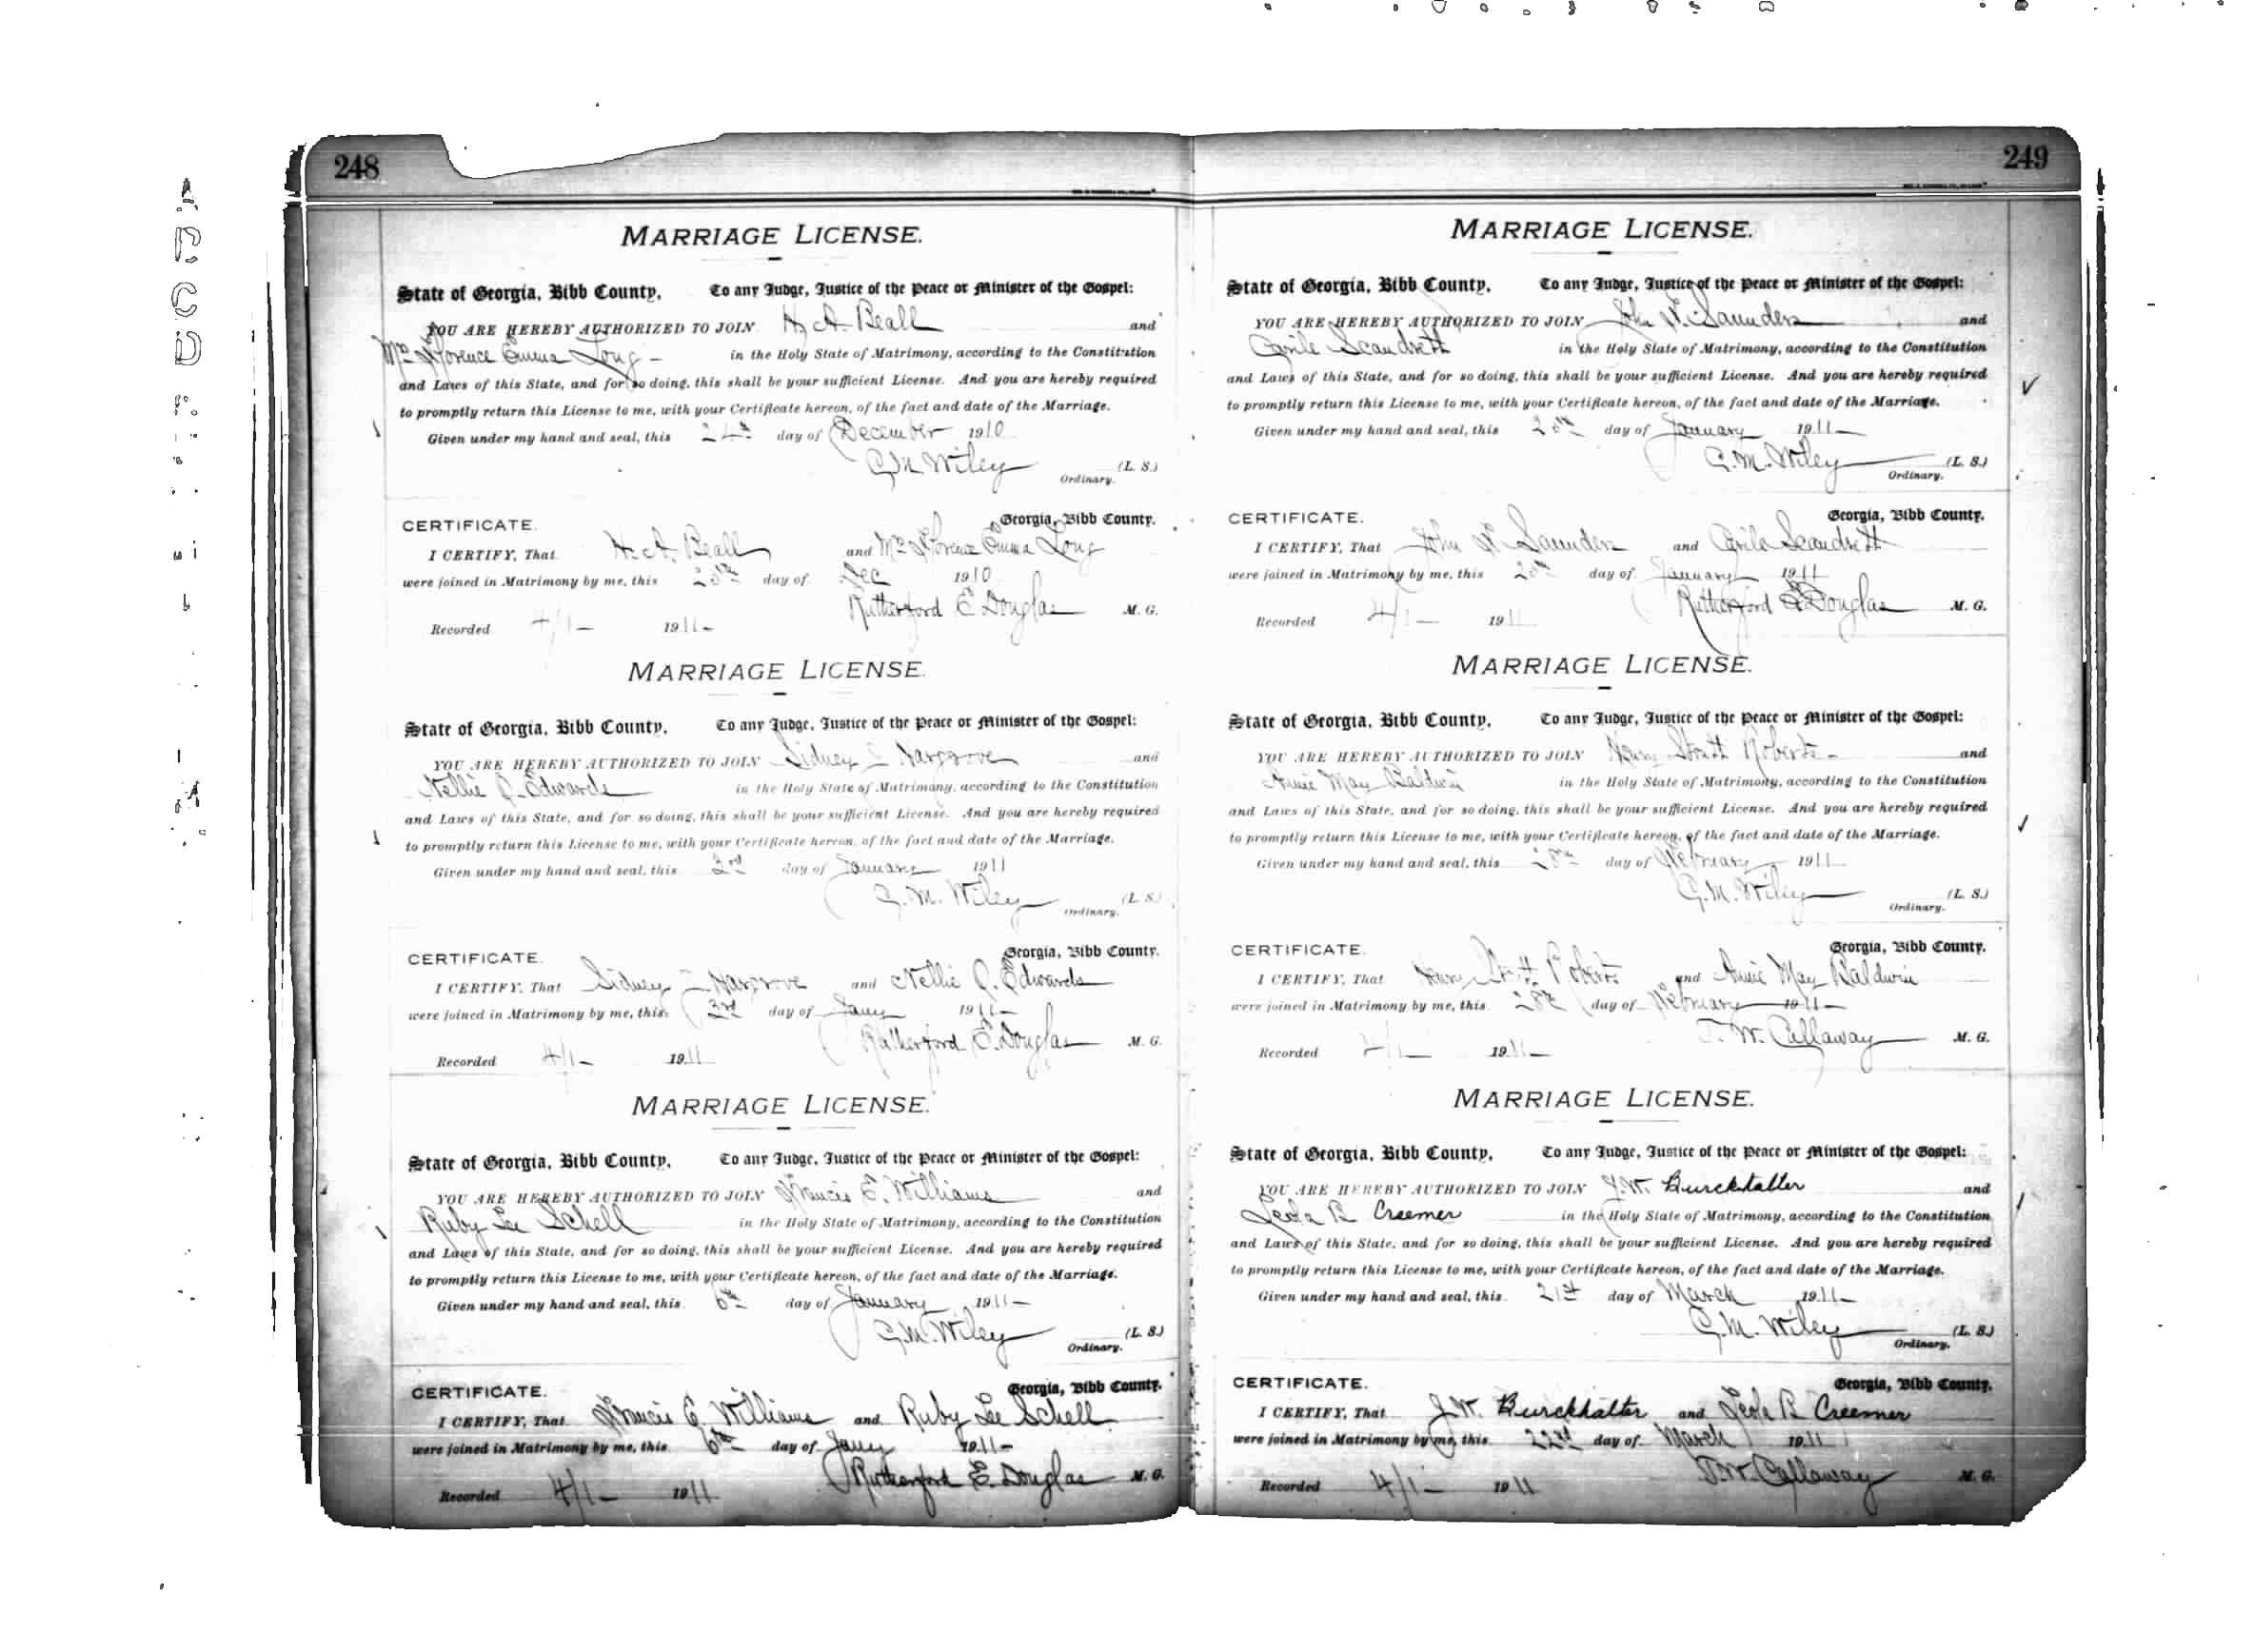 248
MARRIAGE LICENSE.
State of Georgia, Bibb County, To any Judge, Justice of the Peace or Minister of the Gospel:
YOU ARE HEREBY AUTHORIZED TO JOIN H. A. Beall and
Mrs Florence Emma Long - in the Holy State of Matrimony, according to the Constitution
and Laws of this State, and for so doing, this shall be your sufficient License. And you are hereby required
to promptly return this License to me, with your Certificate hereon, of the fact and date of the Marriage.
Given under my hand and seal, this 24th day of December 1910
C. M. Wiley (L. S.)
Ordinary.
CERTIFICATE. Georgia, Bibb County.
I CERTIFY, That H. A. Beall and Mrs Florence Emma Long
were joined in Matrimony by me, this day of Dec 1910
Rutherford E. Douglas M. G.
Recorded 4/1- 1911-
MARRIAGE LICENSE.
State of Georgia, Bibb County, To any Judge, Justice of the Peace or Minister of the Gospel:
YOU ARE HEREBY AUTHORIZED TO JOIN Sidney Hargrove and
Nellie Edwards in the Holy State of Matrimony, according to the Constitution
and Laws of this State, and for so doing, this shall be your sufficient License. And you are hereby required
to promptly return this License to me, with your Certificate hereon, of the fact and date of the Marriage.
Given under my hand and seal, this 3rd day of January 1911
C. M. Wiley (L. S.)
Ordinary.
CERTIFICATE. Georgia, Bibb County.
I CERTIFY, That Sidney Hargrove and Nellie Edwards
were joined in Matrimony by me, this 3rd day of Jany 1911-
Rutherford E. Douglas M. G.
Recorded 4/1- 1911
MARRIAGE LICENSE.
State of Georgia, Bibb County, To any Judge, Justice of the Peace or Minister of the Gospel:
YOU ARE HEREBY AUTHORIZED TO JOIN Francis E. Williams and
Ruby Lee Schell in the Holy State of Matrimony, according to the Constitution
and Laws of this State, and for so doing, this shall be your sufficient License. And you are hereby required
to promptly return this License to me, with your Certificate hereon, of the fact and date of the Marriage.
Given under my hand and seal, this 6th day of January 1911-
C. M. Wiley (L. S.)
Ordinary.
CERTIFICATE. Georgia, Bibb County.
I CERTIFY, That Francis E. Williams and Ruby Lee Schell
were joined in Matrimony by me, this 6th day of Jany 1911-
Rutherford E. Douglas M. G.
Recorded 4/1- 1911
249
MARRIAGE LICENSE.
State of Georgia, Bibb County, To any Judge, Justice of the Peace or Minister of the Gospel:
YOU ARE HEREBY AUTHORIZED TO JOIN John Saunders and
Scandrett in the Holy State of Matrimony, according to the Constitution
and Laws of this State, and for so doing, this shall be your sufficient License. And you are hereby required
to promptly return this License to me, with your Certificate hereon, of the fact and date of the Marriage.
Given under my hand and seal, this day of January 1911-
C. M. Wiley (L. S.)
Ordinary.
CERTIFICATE. Georgia, Bibb County.
I CERTIFY, That John Saunders and Scandrett
were joined in Matrimony by me, this day of January 1911
Rutherford E. Douglas M. G.
Recorded 4/1- 1911
MARRIAGE LICENSE.
State of Georgia, Bibb County, To any Judge, Justice of the Peace or Minister of the Gospel:
YOU ARE HEREBY AUTHORIZED TO JOIN Roberts - and
Annie May Baldwin in the Holy State of Matrimony, according to the Constitution
and Laws of this State, and for so doing, this shall be your sufficient License. And you are hereby required
to promptly return this License to me, with your Certificate hereon, of the fact and date of the Marriage.
Given under my hand and seal, this 28th day of February 1911
C. M. Wiley (L. S.)
Ordinary.
CERTIFICATE. Georgia, Bibb County.
I CERTIFY, That Roberts and Annie May Baldwin
were joined in Matrimony by me, this 28th day of February 1911-
T. W. Callaway M. G.
Recorded 4/1- 1911-
MARRIAGE LICENSE.
State of Georgia, Bibb County, To any Judge, Justice of the Peace or Minister of the Gospel:
YOU ARE HEREBY AUTHORIZED TO JOIN J. W. Burckhalter and
Leola B Creemer in the Holy State of Matrimony, according to the Constitution
and Laws of this State, and for so doing, this shall be your sufficient License. And you are hereby required
to promptly return this License to me, with your Certificate hereon, of the fact and date of the Marriage.
Given under my hand and seal, this 21st day of March 1911-
C. M. Wiley (L. S.)
Ordinary.
CERTIFICATE. Georgia, Bibb County.
I CERTIFY, That J. W. Burckhalter and Leola B Creemer
were joined in Matrimony by me, this 22nd day of March 1911
T. W. Callaway M. G.
Recorded 4/1- 1911